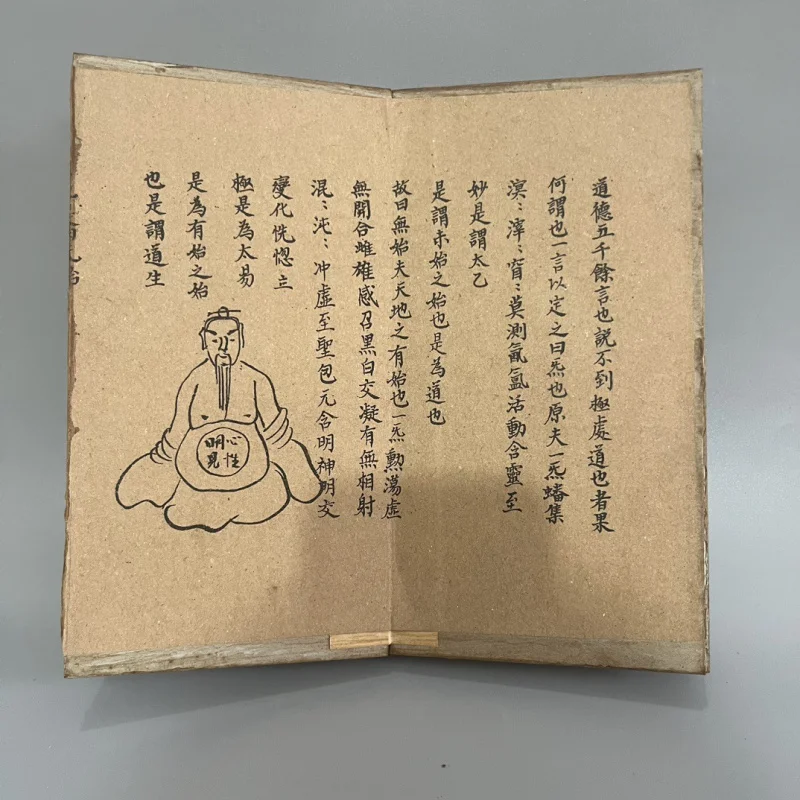 道德五千餘言也說不到極處道也者果
何謂也一言以定之曰炁也原夫一炁蟠集
溟〻滓〻窅〻莫測氤氳活動含靈至
妙是謂太乙
是謂未始之始也是為道也
故曰無始夫天地之有始也一炁勲蕩虛
無開合雌雄感召黑白交凝有無相射
混〻沌〻冲虛至聖包元含明神明交
變化恍惚立
極是為太易
是為有始之始
也是謂道生
明心見性